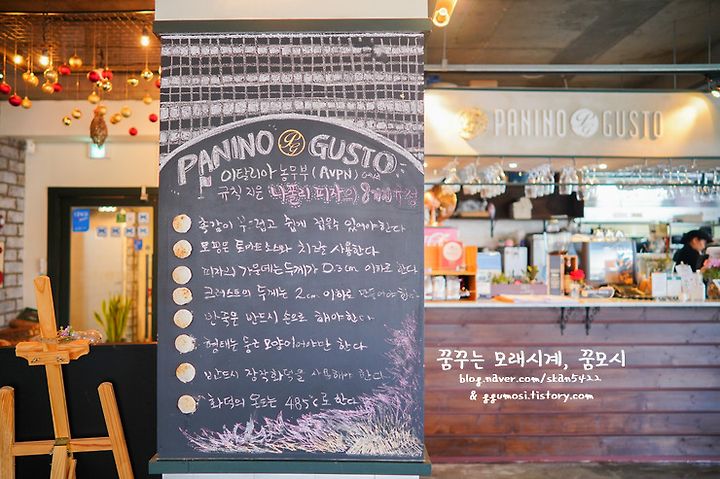 PANINO GUSTO
이탈리아 농무부 (AVPN) 에서
규칙 지은 나폴리 피자의 8가지 규정
촉감이 부드럽고 쉽게 접을수 있어야한다
토핑은 토마토소스와 치즈만 사용한다
피자의 가운데는 두께가 0.3cm 이하로 한다
크러스트의 두께는 2cm 이하로 만들어야 한다
반죽은 반드시 손으로 해야한다
형태는 둥근 모양이어야만 한다
반드시 장작화덕을 사용해야 한다
화덕의 온도는 485℃로 한다
PANINO GUSTO
꿈꾸는 모래시계, 꿈모시
blog.naver.com/skan5422
& ggumosi.tistory.com